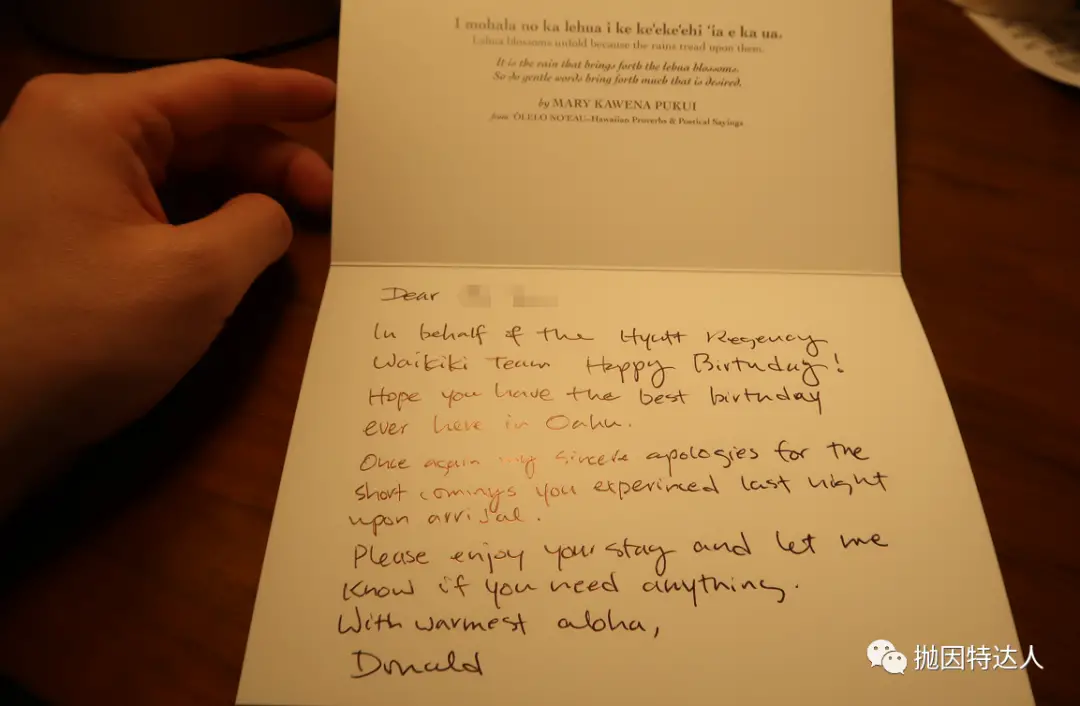 I mohala no ka lehua i ke keʻekeʻehi ʻia e ka ua.
Lehua blossoms unfold because the rains tread upon them.
It is the rain that brings forth the lehua blossoms.
So do gentle words bring forth much that is desired.
by MARY KAWENA PUKUI
from ʻŌLELO NOʻEAU—Hawaiian Proverbs & Poetical Sayings
Dear
In behalf of the Hyatt Regency
Waikiki Team Happy Birthday!
Hope you have the best birthday
ever here in Oahu.
Once again my sincere apologies for the
short comings you experinced last night
upon arrival.
Please enjoy your stay and let me
Know if you need anything.
With warmest aloha,
Donald
抛因特达人